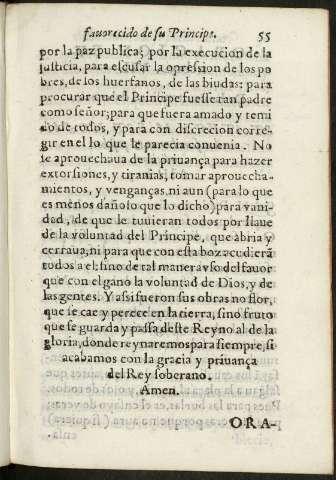 fauorecido de su Principe. 55
por la paz publica; por la execucion de la
justicia, para escusar la opression de los po
bres, de los huerfanos, de las biudas: para
procurar que el Principe fuesse tan padre
como señor; para que fuera amado y temi
do de todos, y para con discrecion corre-
gir en el lo que le parecia conuenia. No
se aprouechaua de la priuança para hazer
extorsiones, y tiranias, tomar aprouecha-
mientos, y venganças, ni aun (para lo que
es menos dañoso que lo dicho) para vani-
dad, de que le tuuieran todos por llaue
de la voluntad del Principe, que abria y
cerraua, ni para que con esta boz acudierã
todos a el sino de tal manera vso del fauor
que con el ganò la voluntad de Dios, y de
las gentes. Y assi fueron sus obras no flor,
que se cae y perece en la tierra, sino fruto
que se guarda y passa deste Reyno al de la
gloria, donde reynaremos para siempre, si
acabamos con la gracia y priuança
del Rey soberano.
Amen.
ORA-